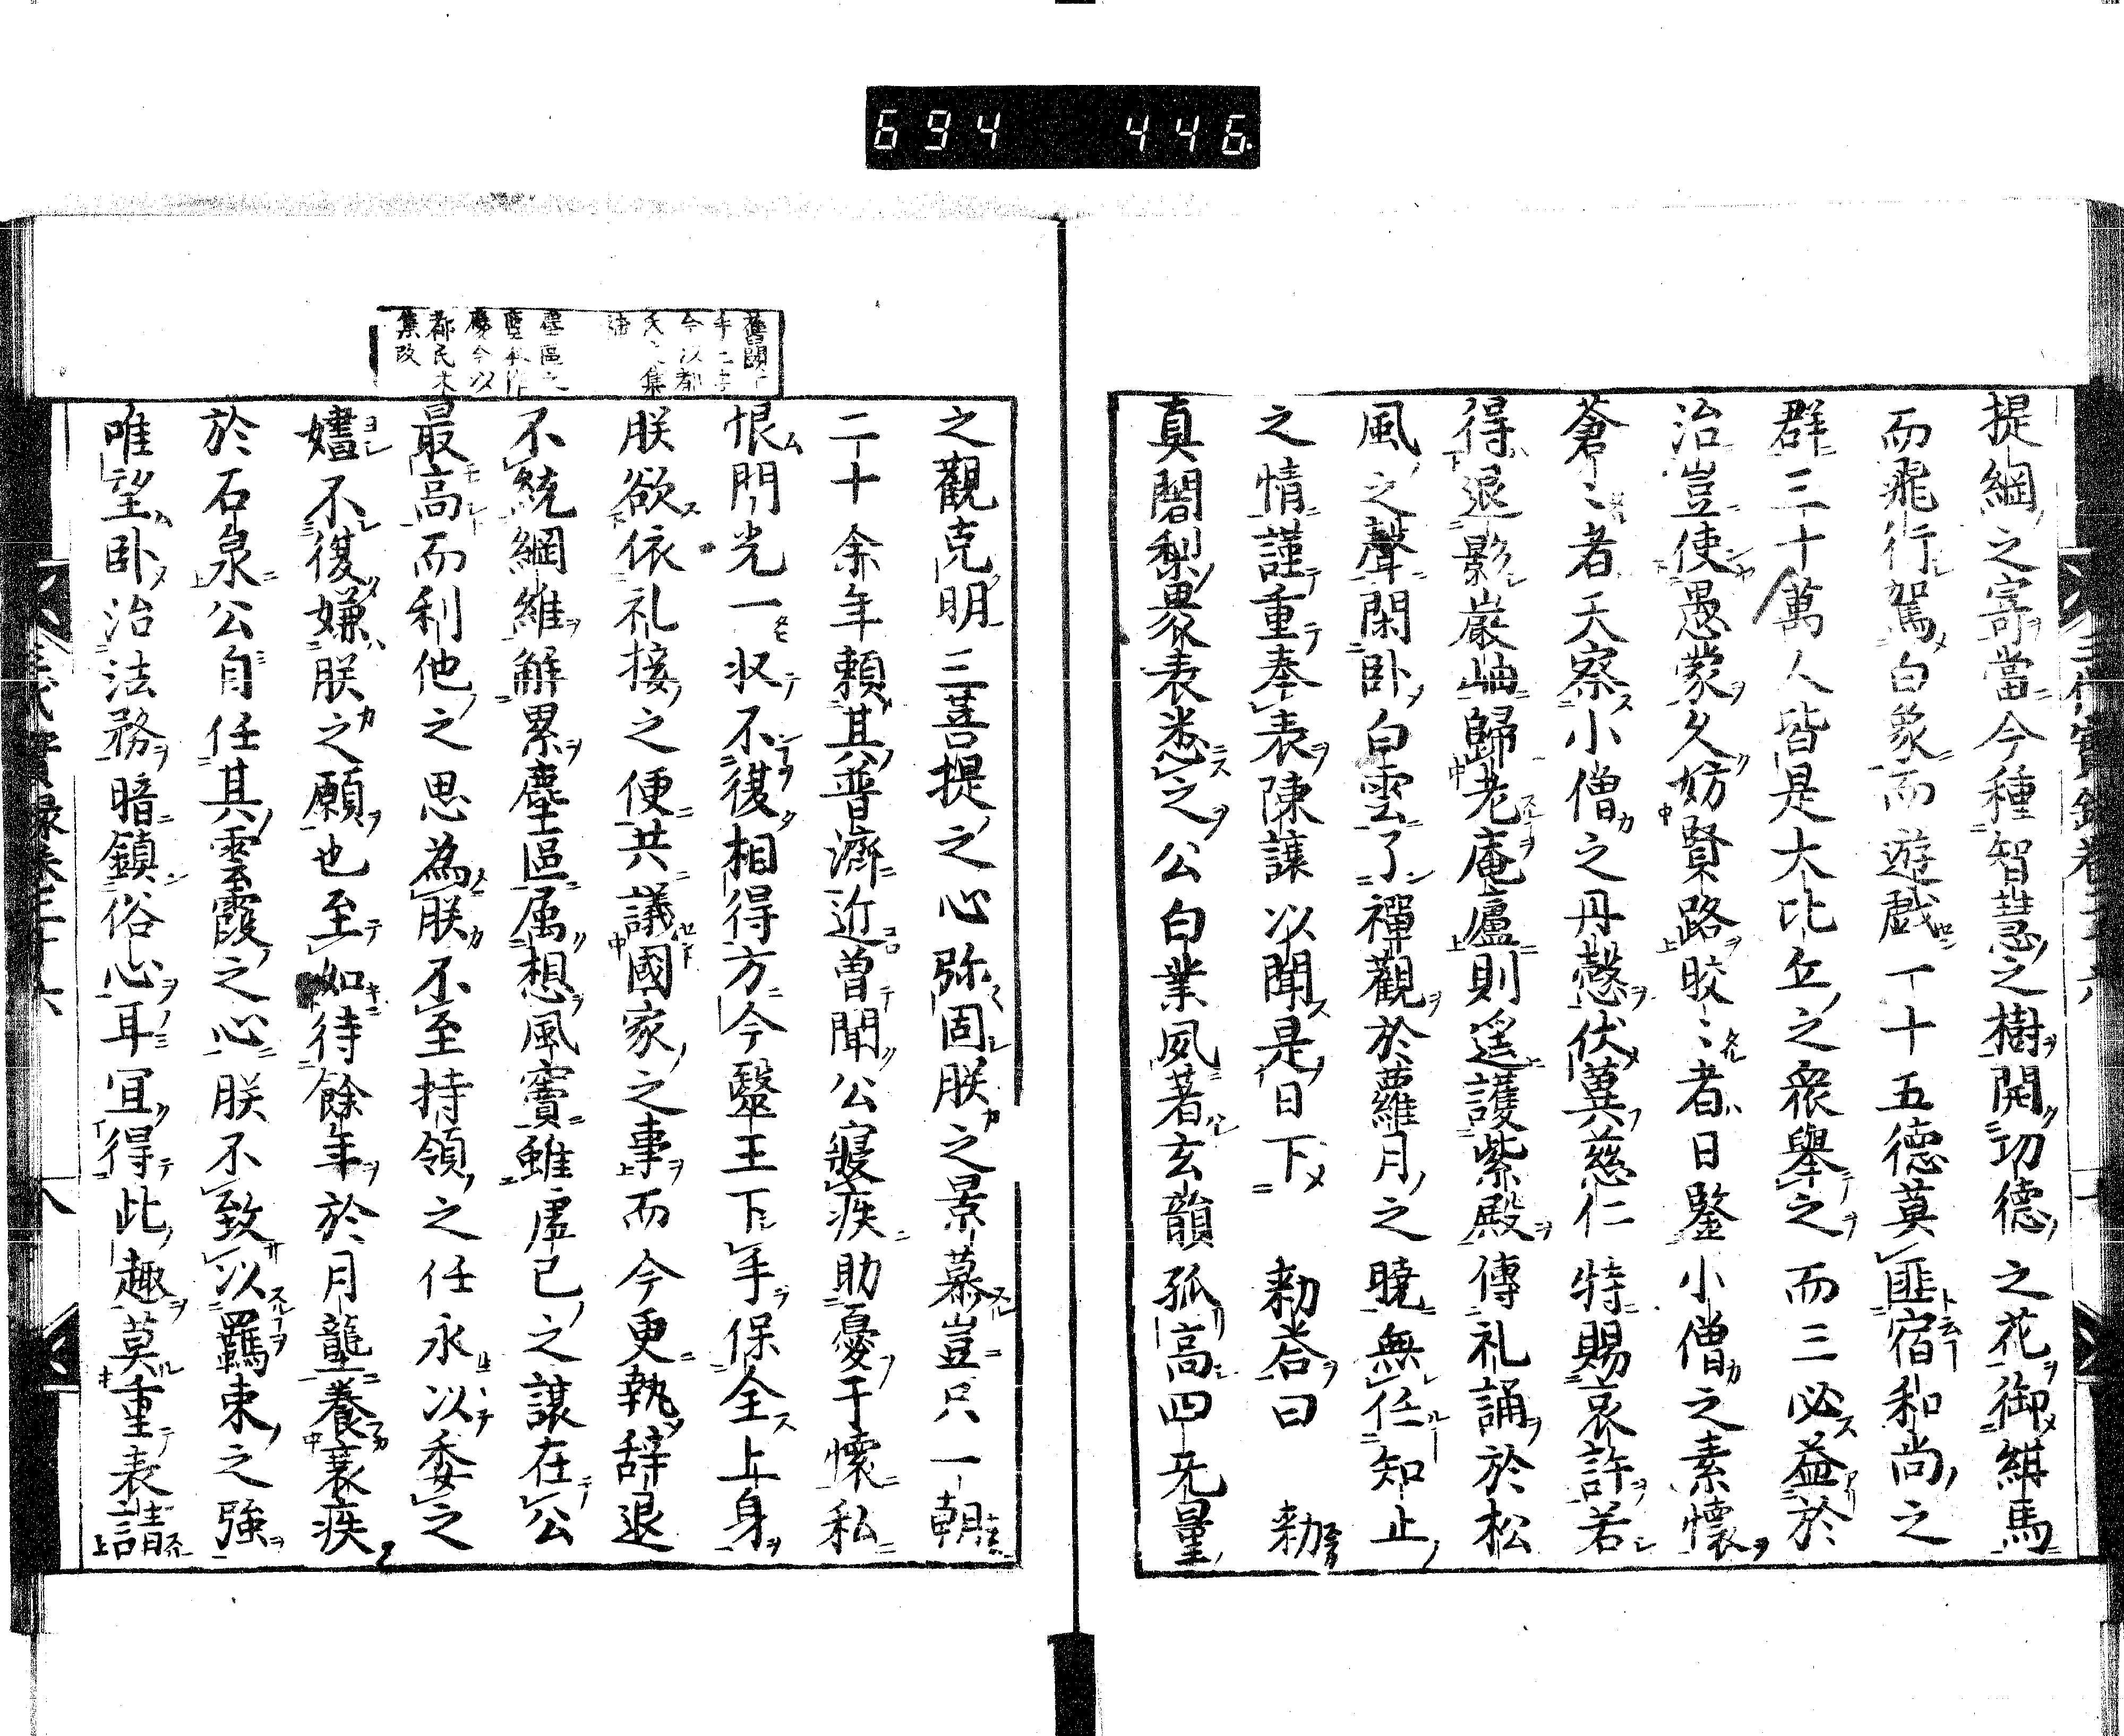 694 446
提綱之寄當今種智慧之樹開功德之花御緋馬
而飛行駕白象而遊戯一十五德莫匪宿和尚之
群三十萬人皆是大比丘之衆舉之而三必益於
治豈使愚蒙久妨賢路皎〻者日鑒小僧之素懷
蒼〻者天察小僧之丹慤伏冀慈仁特賜哀許若
得退影巖岫歸老庵廬則遥護紫殿傳礼誦於松
風之聲閑卧白雲了禪觀於蘿月之曉無任知止
之情謹重奉表陳讓以聞是日下 勅荅曰 勅
真闍梨累表悉之公白業夙著玄韻孤高四无量
之觀克明三菩提之心弥固朕之景慕豈只一朝
二十余年頼其普濟近曽聞公寢疾助憂于懷私
恨閇光一収不復相得方今翳王下手保全上身
朕欲依礼接之便共議國家之事而今更執辞退
不統綱維解累塵區属想風竇雖虚已之譲在公
最高而利他之思為朕不至持領之任永以委之
嬉不復嫌朕之願也至如待餘年於月龕養衰疾
於石泉公自任其雲霞之心朕不致以羈束之強
唯望卧治法務暗鎮俗心耳冝得此趣莫重表請